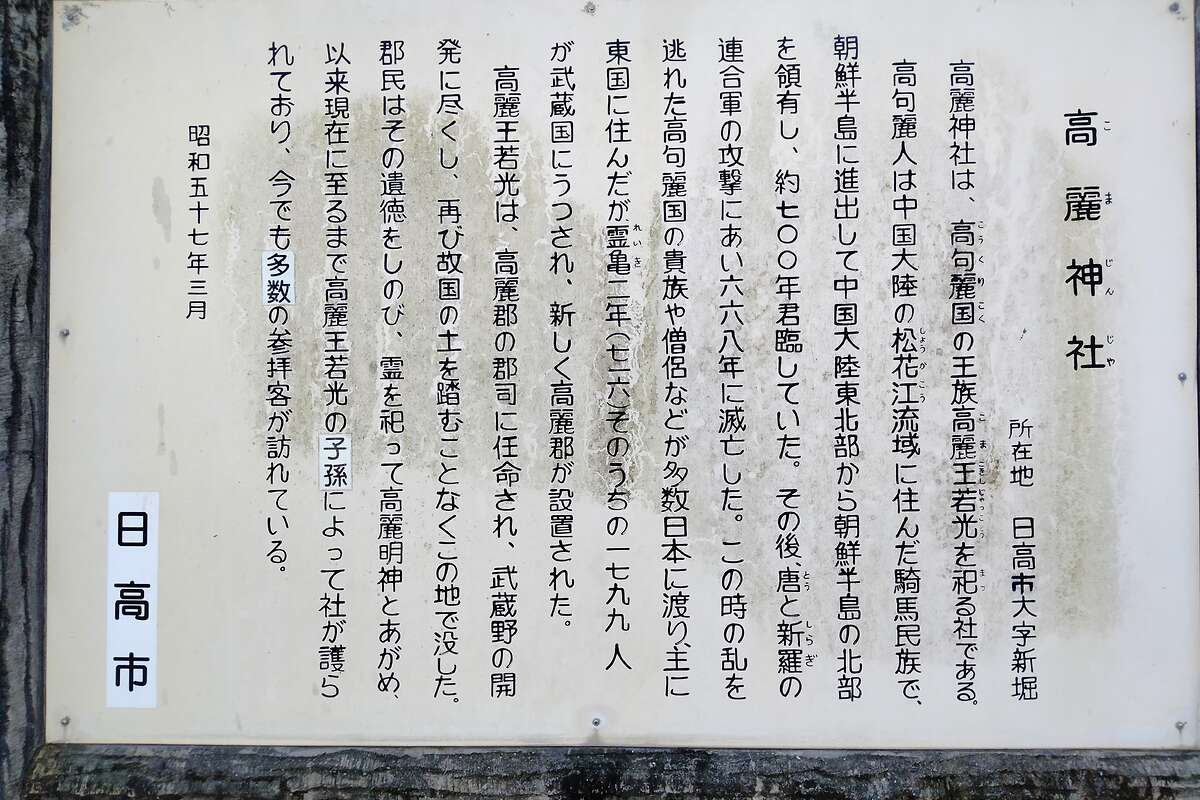 高麗神社
こまじんじゃ
所在地 日高市大字新堀
高麗神社は、高句麗国の王族高麗王若光を祀る社である。
こうくりこく こまこきしじゃっこう まつ
高句麗人は中国大陸の松花江流域に住んだ騎馬民族で、
しょうかこう
朝鮮半島に進出して中国大陸東北部から朝鮮半島の北部
を領有し、約七〇〇年君臨していた。その後、唐と新羅の
とう しらぎ
連合軍の攻撃にあい六六八年に滅亡した。この時の乱を
逃れた高句麗国の貴族や僧侶などが多数日本に渡り、主に
東国に住んだが霊亀二年(七一六)そのうちの一七九九人
れいき
が武蔵国にうつされ、新しく高麗郡が設置された。
高麗王若光は、高麗郡の郡司に任命され、武蔵野の開
発に尽くし、再び故国の土を踏むことなくこの地で没した。
郡民はその遺徳をしのび、霊を祀って高麗明神とあがめ、
以来現在に至るまで高麗王若光の子孫によって社が護ら
れており、今でも多数の参拝客が訪れている。
昭和五十七年三月
日高市